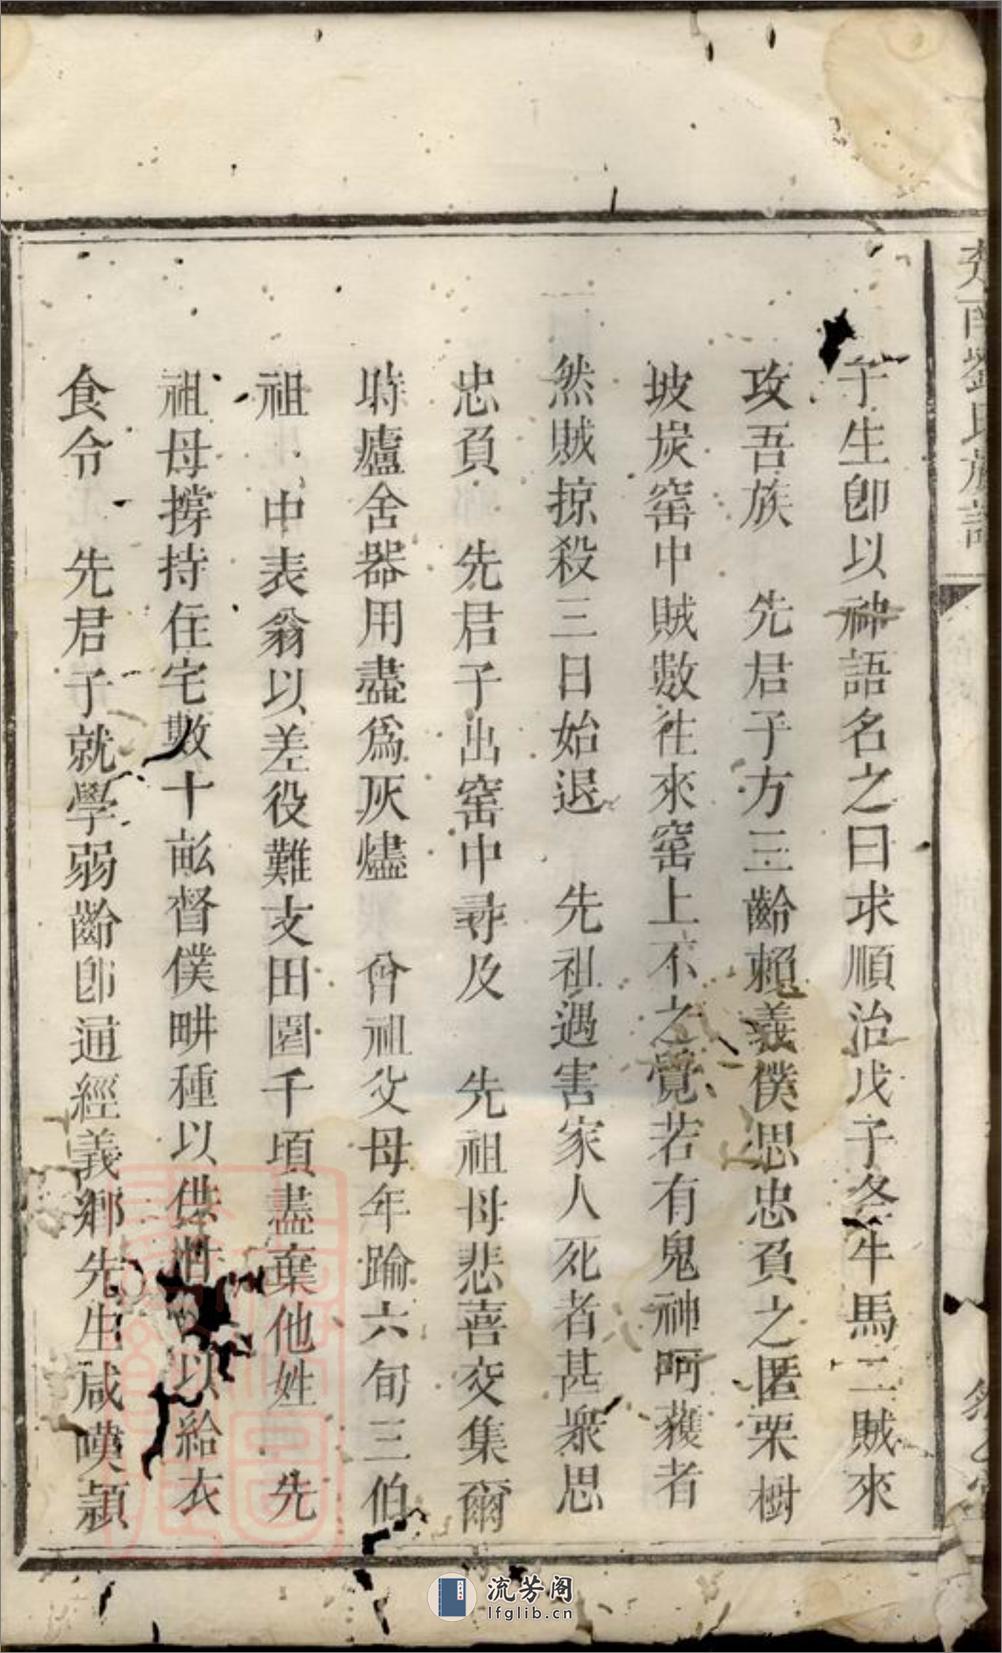 子生卽以神語名之曰求順治戊子冬牛馬二賊來
攻吾族　先君子方三齡賴義僕思忠負之匿栗樹
坡炭窰中賊數徃來窰上不之覺若有鬼神呵護者
然賊掠殺三日始退　先祖遇害家人死者甚衆思
忠負　先君子出窰中尋及　先祖母悲喜交集爾
時廬舍器用盡爲灰燼　曾祖父母年踰六旬三伯
祖　中表翁以差役難支田園千頃盡棄他姓　先
祖母撐持住宅數十畝督僕畊種以供　以給衣
食令　先君子就學弱齡卽通經義鄉先生咸嘆穎
劉氏族譜
流芳阁
lfglib.cn